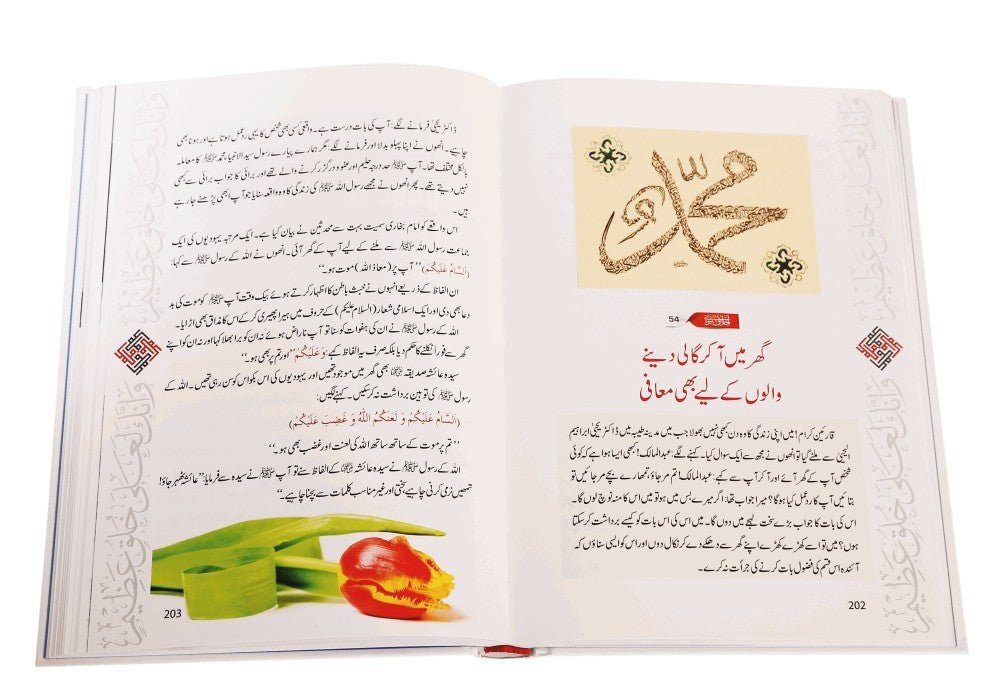 محمد
54
گھر میں آ کر گالی دینے
والوں کے لیے بھی معافی
قارئین کرام! میں اپنی زندگی کا وہ دن کبھی نہیں بھولا جب میں مدینہ طیبہ میں ڈاکٹر یحییٰ ابراہیم
الیحییٰ سے ملنے گیا تو انھوں نے مجھ سے ایک سوال کیا۔ کہنے لگے: عبدالمالک! کبھی ایسا ہوا ہے کہ کوئی
شخص آپ کے گھر آئے اور آ کر آپ سے کہے: عبدالمالک! تم مر جاؤ، تمھارے بچے مر جائیں تو
بتائیں آپ کا ردعمل کیا ہوگا؟ میرا جواب تھا: اگر میرے بس میں ہو تو میں اس کا منہ نوچ لوں گا۔
اس کی بات کا جواب بڑے سخت لہجے میں دوں گا۔ میں اس کی اس بات کو کیسے برداشت کر سکتا
ہوں؟ میں تو اسے کھڑے کھڑے اپنے گھر سے دھکے دے کر نکال دوں اور اس کو ایسی سناؤں کہ
آئندہ اس قسم کی فضول بات کرنے کی جرأت نہ کرے۔
202
وَإِنَّكَ لَعَلَىٰ خُلُقٍ عَظِيمٍ
ڈاکٹر یحییٰ فرمانے لگے: آپ کی بات درست ہے۔ واقعی کسی بھی شخص کا یہی ردعمل ہوتا ہے اور ہونا بھی
چاہیے۔ انھوں نے اپنا پہلو بدلا اور فرمانے لگے: مگر ہمارے پیارے رسول سید الانبیاء محمد ﷺ کا معاملہ
بالکل مختلف تھا۔ آپ ﷺ حد درجہ حلیم اور عفو و درگزر کرنے والے تھے اور برائی کا جواب برائی سے کبھی
نہیں دیتے تھے۔ پھر انھوں نے مجھے رسول اللہ ﷺ کی زندگی کا وہ واقعہ سنایا جو آپ ابھی پڑھنے جا رہے
ہیں۔
اس واقعے کو امام بخاری سمیت بہت سے محدثین نے بیان کیا ہے۔ ایک مرتبہ یہودیوں کی ایک
جماعت رسول اللہ ﷺ سے ملنے کے لیے آپ کے گھر آئی۔ انھوں نے اللہ کے رسول ﷺ سے کہا:
(اَلسَّامُ عَلَيْكُمْ) ’’آپ پر (معاذ اللہ) موت ہو۔‘‘
ان الفاظ کے ذریعے انہوں نے خبث باطن کا اظہار کرتے ہوئے بیک وقت آپ ﷺ کو موت کی بد
دعا بھی دی اور ایک اسلامی شعار (السلام علیکم) کے حروف میں ہیرا پھیری کر کے اس کا مذاق بھی اڑایا۔
اللہ کے رسول ﷺ نے ان کی ہفوات کو سنا تو آپ ناراض ہوئے نہ ان کو برا بھلا کہا اور نہ ان کو اپنے
گھر سے فوراً نکلنے کا حکم دیا بلکہ صرف یہ الفاظ کہے: وَعَلَيْكُمْ ’’اور تم پر بھی ہو۔‘‘
سیدہ عائشہ صدیقہ بھی گھر میں موجود تھیں اور یہودیوں کی اس بکواس کو سن رہی تھیں۔ اللہ کے
رسول ﷺ کی توہین برداشت نہ کر سکیں۔ کہنے لگیں:
(اَلسَّامُ عَلَيْكُمْ وَ لَعَنَكُمُ اللّٰهُ وَ غَضِبَ عَلَيْكُمْ)
’’تم پر موت کے ساتھ ساتھ اللہ کی لعنت اور غضب بھی ہو۔‘‘
اللہ کے رسول ﷺ نے سیدہ عائشہ کے الفاظ سنے تو آپ ﷺ نے سیدہ سے فرمایا: ’’عائشہ ٹھہر جاؤ!
تمھیں نرمی کرنی چاہیے، سختی اور غیر مناسب کلمات سے بچنا چاہیے۔‘‘
203
وَإِنَّكَ لَعَلَىٰ خُلُقٍ عَظِيمٍ